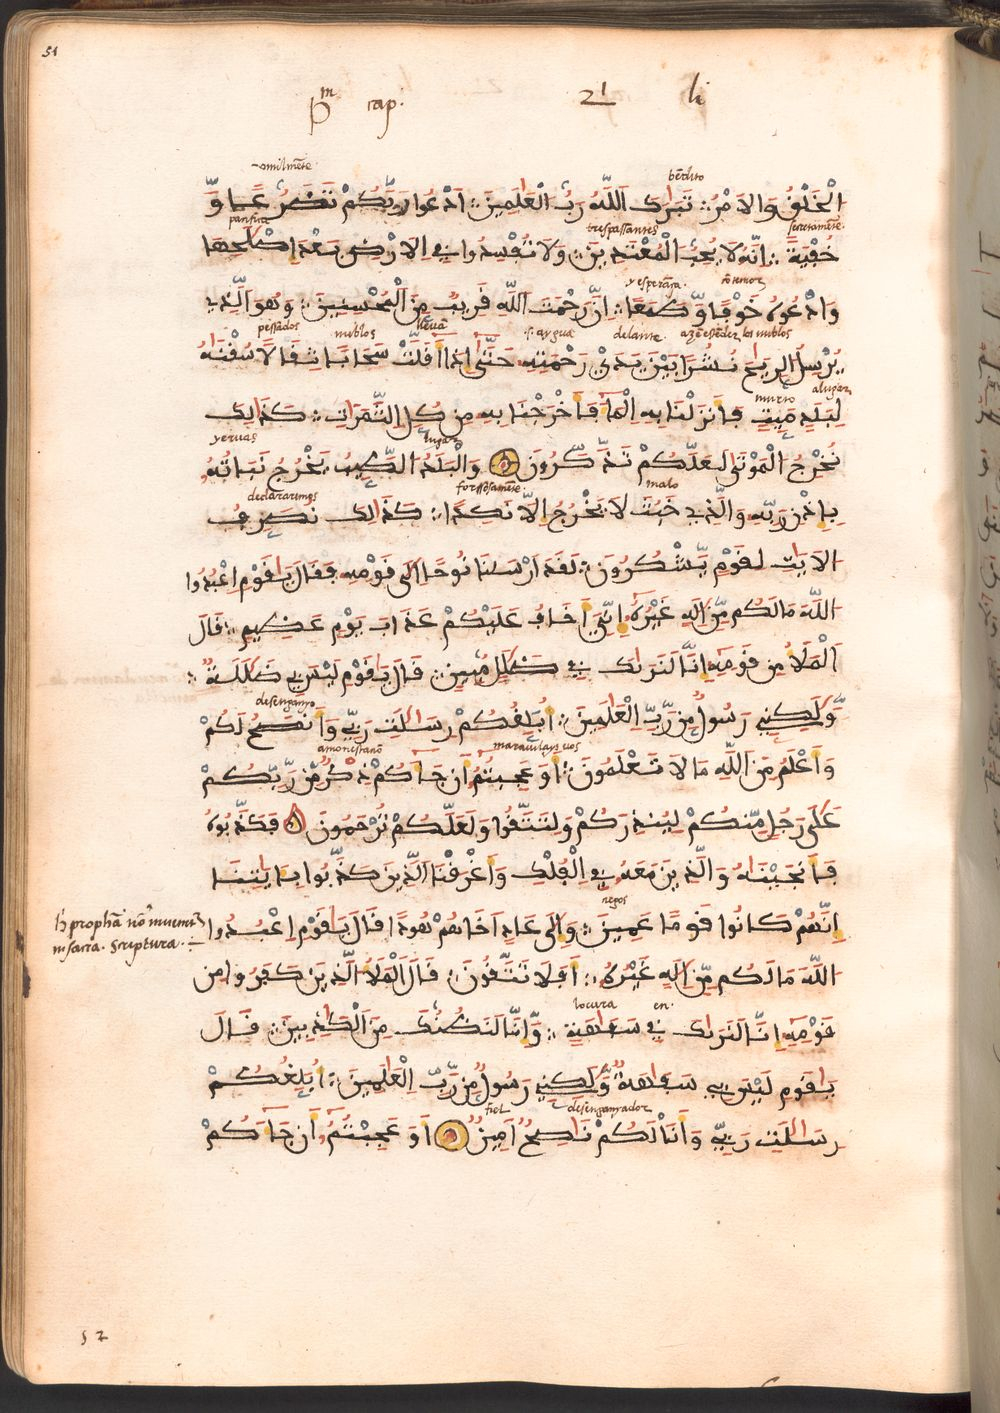 51
pm cap. 21 li
omilmēte bēdito
الْخَلْقُ وَالاَمْرُ تَبَرَكَ اَللَّهُ رَبُّ الْعَلَمِينَ اَدْعُوا رَبَّكُمْ تَضَرُّعًا وَّ
trespassantes secretamēte
خُفْيَةً اِنَّهُ لَا يُحِبُّ الْمُعْتَدِينَ وَلَا تُفْسِدُوا فِي الاَرْضِ بَعْدَ اِصْلَحِهَا
y esperāça
وَادْعُوهُ خَوْفًا وَّطَمَعًا اِنَّ رَحْمَتَ اَللَّهِ قَرِيبٌ مِّنَ الْمُحْسِنِينَ وَهُوَ الَّذِي
pessados nublos lleuā aygua delante los nublos
يُرْسِلُ الرِّيَحَ نُشُرًا بَيْنَ يَدَيْ رَحْمَتِهِ حَتَّى اِذَا اَقَلَّتْ سَحَابًا ثِقَالًا سُقْنَهُ
murto a lugar
لِبَلَدٍ مَّيِّتٍ فَاَنزَلْنَا بِهِ الْمَا فَاَخْرَجْنَا بِهِ مِن كُلِّ الثَّمَرَاتِ كَذَلِكَ
yeruas lugar
نُخْرِجُ الْمَوْتَى لَعَلَّكُمْ تَذَّكَّرُونَ وَالْبَلَدُ الطَّيِّبُ يَخْرُجُ نَبَاتُهُ
declararemos forssosamēte malo
بِإِذْنِ رَبِّهِ وَالَّذِي خَبُثَ لَا يَخْرُجُ اِلَّا نَكِدًا كَذَلِكَ نُصَرِّفُ
الاَيَتِ لِقَوْمٍ يَّشْكُرُونَ لَقَدْ اَرْسَلْنَا نُوحًا اِلَى قَوْمِهِ فَقَالَ يَاقَوْمِ اعْبُدُوا
اللَّهَ مَا لَكُم مِّنْ اِلَهٍ غَيْرُهُ اِنِّيَ اَخَافُ عَلَيْكُمْ عَذَابَ يَوْمٍ عَظِيمٍ قَالَ
اَلْمَلَأُ مِن قَوْمِهِ اِنَّا لَنَرَىكَ فِي ضَلَلٍ مُّبِينٍ قَالَ يَاقَوْمِ لَيْسَ بِي ضَلَلَةٌ
desenganyo
وَّلَكِنِّي رَسُولٌ مِّن رَّبِّ الْعَلَمِينَ اُبَلِّغُكُمْ رِسَالَتِ رَبِّي وَاَنصَحُ لَكُمْ
amonestano marauilays uos
وَاَعْلَمُ مِنَ اَللَّهِ مَا لَا تَعْلَمُونَ اَوَعَجِبْتُمُ اَن جَاكُمْ ذِكْرٌ مِّن رَّبِّكُمْ
عَلَى رَجُلٍ مِّنكُمْ لِيُنذِرَكُمْ وَلِتَتَّقُوا وَلَعَلَّكُمْ تُرْحَمُونَ فَكَذَّبُوهُ
فَاَنجَيْنَهُ وَالَّذِينَ مَعَهُ فِي الْفُلْكِ وَاَغْرَقْنَا اَلَّذِينَ كَذَّبُوا بِـَايَتِنَا
اِنَّهُمْ كَانُوا قَوْمًا عَمِينَ وَاِلَى عَادٍ اَخَاهُمْ هُودًا قَالَ يَاقَوْمِ اعْبُدُوا
h prophā nō inuenit
in sacra scriptura
اللَّهَ مَا لَكُم مِّنْ اِلَهٍ غَيْرُهُ اَفَلَا تَتَّقُونَ قَالَ اَلْمَلَأُ الَّذِينَ كَفَرُوا مِن
locura en
قَوْمِهِ اِنَّا لَنَرَىكَ فِي سَفَاهَةٍ وَّاِنَّا لَنَظُنُّكَ مِنَ اَلْكَذِبِينَ قَالَ
يَاقَوْمِ لَيْسَ بِي سَفَاهَةٌ وَّلَكِنِّي رَسُولٌ مِّن رَّبِّ الْعَلَمِينَ اُبَلِّغُكُمْ
fiel desenganyador
رِسَالَتِ رَبِّي وَاَنَا لَكُمْ نَاصِحٌ اَمِينٌ اَوَعَجِبْتُمُ اَن جَاكُمْ
52